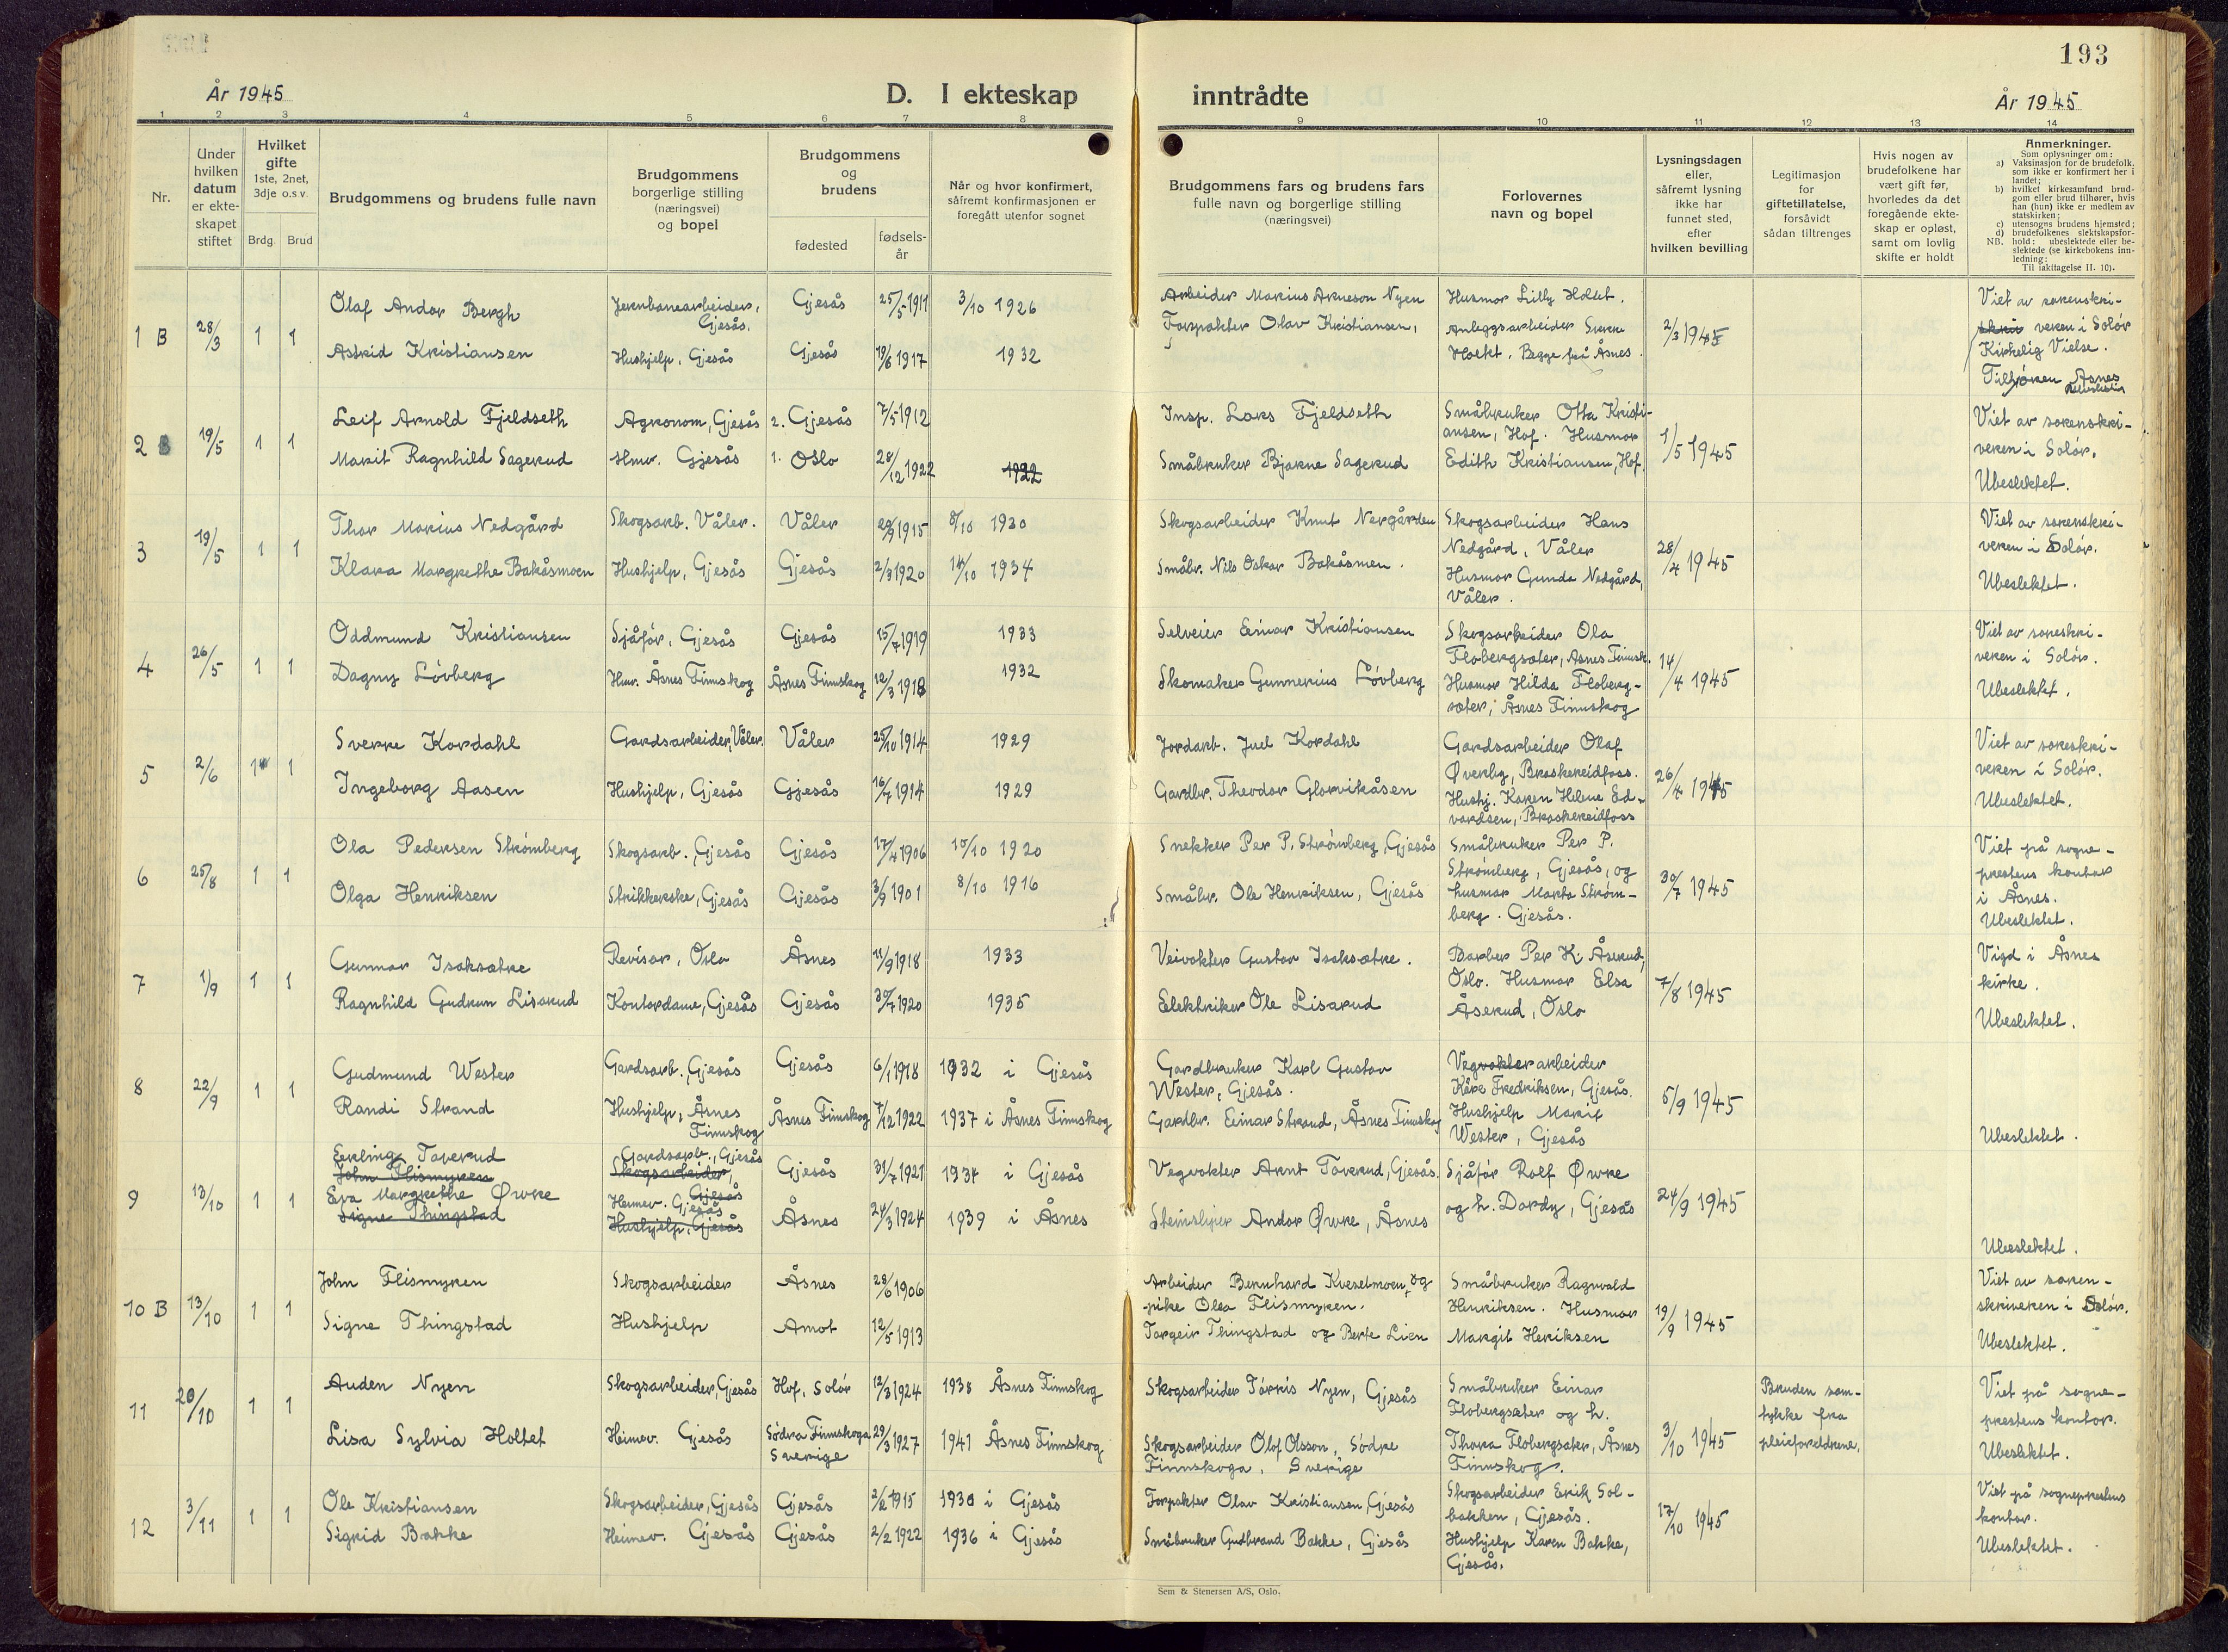 193
År 1945
D. I ekteskap inntrådte
År 1945
1 2 3 4 5 6 7 8 9 10 11 12 13 14
Nr.
Under hvilken datum er ekteskapet stiftet
Hvilket gifte 1ste, 2net, 3dje o.s.v.
Brdg. Brud
Brudgommens og brudens fulle navn
Brudgommens borgerlige stilling (næringsvei) og bopel
Brudgommens og brudens
fødested
fødsels-år
Når og hvor konfirmert, såfremt konfirmasjonen er foregått utenfor sognet
Brudgommens fars og brudens fars fulle navn og borgerlige stilling (næringsvei)
Forlovernes navn og bopel
Lysningsdagen eller, såfremt lysning ikke har funnet sted, efter hvilken bevilling
Legitimasjon for giftetillatelse, forsåvidt sådan tiltrenges
Hvis nogen av brudefolkene har vært gift før, hvorledes da det foregående ekteskap er opløst, samt om lovlig skifte er holdt
Anmerkninger.
Som oplysninger om:
a) Vaksinasjon for de brudefolk. som ikke er konfirmert her i landet;
b) hvilket kirkesamfund brudgom eller brud tilhører, hvis han (hun) ikke er medlem av statskirken;
c) utensogns brudens hjemsted;
d) brudefolkenes slektskapsforhold: ubeslektede eller beslektede (se kirkebokens innledning:
NB.
Til iakttagelse II. 10).
1 B 28/3 1 1
Olaf Andor Bergh Jernbanearbeider, Gjesås. Gjesås 25/5 1911 3/10 1926
Astrid Kristiansen Hushjelp, Gjesås Gjesås 19/6 1917 1932
Arbeider Marius Arneson Nyen
Forpakter Olav Kristiansen,
Husmor Lilly Holtet.
Anleggsarbeider Sverre
. Begge frå Åsnes.
2/3 1945
Viet av sorenskri-
veren i Solør
Kirkelig Vielse.
Åsnes
Ubeslektet
2 B 19/5 1 1
Leif Arnold Fjeldseth Agronom, Gjesås 2. Gjesås 7/5 1912
Marit Ragnhild Sagerud Hmv. Gjesås 1. Oslo 28/12 1922 1922
Insp. Lars Fjeldseth
Småbruker Bjarne Sagerud
Småbruker Otta Kristi-
ansen, Hof. Husmor
Edith Kristiansen, Hof.
1/5 1945
Viet av sorenskri-
veren i Solør.
Ubeslektet.
3 19/5 1 1
Thor Marius Nedgård Skogsarb. Våler. Våler 20/9 1915 8/10 1930
Klara Margrethe Bakåsmoen Hushjelp, Gjesås Gjesås 2/3 1920 14/10 1934
Skogsarbeider Knut Nergården
Småbr. Nils Oskar Bakåsmen.
Skogsarbeider Hans
Nedgård, Våler
Husmor Gunda Nedgård,
Våler.
28/4 1945
Viet av sorenskri-
veren i Solør.
Ubeslektet.
4 26/5 1 1
Oddmund Kristiansen Sjåfør, Gjesås Gjesås 15/7 1919 1933
Dagny Løvberg Hmv. Åsnes Finnskog Åsnes Finnskog 12/3 1918 1932
Selveier Einar Kristiansen
Skomaker Gunnerius Løvberg
Skogsarbeider Ola
Flobergsæter, Åsnes Finnsk.
Husmor Hilda Floberg-
sæter, Åsnes Finnskog
14/4 1945
Viet av soreskri-
veren i Solør.
Ubeslektet.
5 2/6 1 1
Sverre Kordahl Gardsarbeider, Våler. Våler 25/10 1914 1929
Ingeborg Aasen Hushjelp, Gjesås Gjesås 16/7 1914 1929
Jordarb. Juel Kordahl
Gardbr. Theodor Glorvikåsen
Gardsarbeider Olaf
Øverby, Braskereidfoss.
Hushj. Karen Helene Ed-
vardsen, Braskereidfoss
26/4 1945
Viet av soreskri-
veren i Solør.
Ubeslektet.
6 25/8 1 1
Ola Pedersen Strömberg Skogsarb., Gjesås Gjesås 17/4 1906 10/10 1920
Olga Henriksen Strikkerske, Gjesås Gjesås 3/9 1901 8/10 1916
Snekker Per P. Strömberg, Gjesås
Småbr. Ole Henriksen, Gjesås
Småbruker Per P.
Strömberg, Gjesås, og
husmor Marta Strøm-
berg. Gjesås.
30/7 1945
Viet på sogne-
prestens kontor
i Åsnes.
Ubeslektet.
7 1/9 1 1
Gunnar Isaksætre Revisor, Oslo Åsnes 11/9 1918 1933
Ragnhild Gudrun Lisarud Kontordame, Gjesås Gjesås 30/7 1920 1935
Veivokter Gustav Isaksætre.
Elektriker Ole Lisarud
Barber Per K. Åserud,
Oslo. Husmor Elsa
Åserud, Oslo
7/8 1945
Vigd i Åsnes
kirke.
Ubeslektet.
8 22/9 1 1
Gudmund Wester Gardsarb., Gjesås Gjesås 6/1 1918 1932 i Gjesås
Randi Strand Hushjelp, Åsnes Finnskog Åsnes Finnskog 7/12 1922 1937 i Åsnes Finnskog
Gardbruker Karl Gustav
Wester, Gjesås.
Gardbr. Einar Strand, Åsnes Finnskog
Vegvokter arbeider
Kåre Fredriksen, Gjesås.
Hushjelp Marit
Wester, Gjesås
5/9 1945
Ubeslektet.
9 13/10 1 1
Erling Taverud Gardsarb., Gjesås Gjesås 31/7 1921 1934 i Gjesås
John Flismyren Skogsarbeider, Gjesås
Eva Margrethe Øvre Heimev. Gjesås Åsnes 24/3 1924 1939 i Åsnes
Signe Thingstad Hushjelp, Gjesås
Vegvokter Arnt Taverud, Gjesås.
Steinsliper Andor Øvre, Åsnes
Sjåfør Rolf Øvre
og h. Dordy, Gjesås
24/9 1945
Ubeslektet.
10 B 13/10 1 1
John Flismyren Skogsarbeider Åsnes 28/6 1906
Signe Thingstad Hushjelp Amot 12/5 1913
Arbeider Bernhard Kveselmoen, og
pike Olea Flismyren.
Torgeir Thingstad og Berte Lien
Småbruker Ragnvald
Henriksen. Husmor
Margit Heriksen
19/9 1945
Viet av soren-
skriveren i Solør.
Ubeslektet.
11 20/10 1 1
Auden Nyen Skogsarbeider, Gjesås Hof, Solør 12/3 1924 1938 Åsnes Finnskog
Lisa Sylvia Holtet Heimev. Gjesås Södra Finnskoga Sverige 29/3 1927 1941 Åsnes Finnskog
Skogsarbeider Tørris Nyen, Gjesås
Skogsarbeider Olof Olsson, Södre
Finnskoga, Sverige
Småbruker Einar
Flobergsæter og h.
Thora Flobergsæter, Åsnes
Finnskog.
3/10 1945
Bruden sam-
tykke fra
pleieforeldrene.
Viet på sogne-
prestens kontor.
Ubeslektet.
12 3/11 1 1
Ole Kristiansen Skogsarbeider, Gjesås Gjesås 2/2 1915 1930 i Gjesås
Sigrid Bakke Heimev. Gjesås Gjesås 2/2 1922 1936 i Gjesås
Forpakter Olav Kristiansen, Gjesås
Småbruker Gudbrand Bakke, Gjesås
Skogsarbeider Erik Sol-
bakken, Gjesås.
Hushjelp Karen Bakke,
Gjesås.
17/10 1945
Viet på sogneprestens
kontor.
Ubeslektet.
Sem & Stenersen A/S, Oslo.